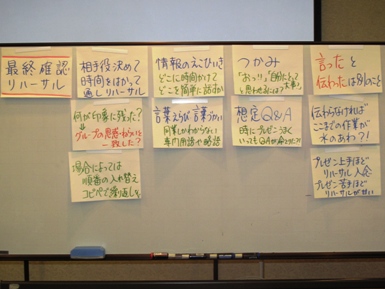 最終確認
リハーサル
相手役決めて
時間をはかって
通しリハーサル
情報のえこひいき
どこに時間かけて
どこを簡単に話すか
つかみ
「おっ!」「自分にとって
と思わせるには?
言ったと
伝わったは別のこと
何が印象に残った?
グループの思惑・ねらいと
一致した?
言葉えらび 言葉づかい
同業しかわからない
専門用語や略語
想定Q&A
時にプレゼンうまく
いってもQ&Aが
伝わらなければ
ここまでの作業が
水のあわ?!
場合によっては
順番の入れ替え
コピペで繰り返し
プレゼン上手ほど
リハーサル入念
プレゼン苦手ほど
リハーサルがない